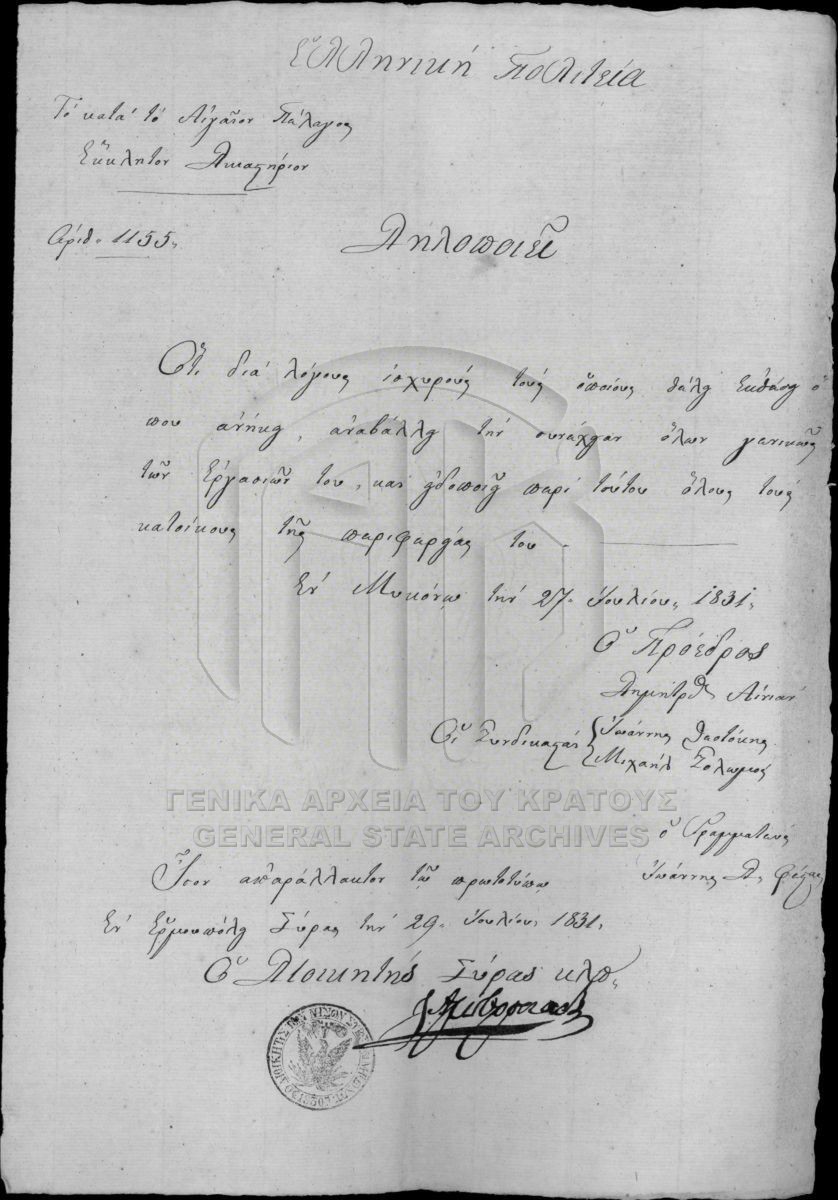 Ἑλληνική Πολιτεία
Τό κατά τό Αἰγαῖον Πέλαγος
Ἔκκλητον Δικαστήριον
Ἀριθ. 1155.
Δηλοποιεῖ
Ὅτι διά λόγους ἰσχυρούς τούς ὁποίους θέλει ἐκθέσει ὅ
που ἀνήκει, ἀναβάλλει τήν συνέχειαν ὅλων γενικῶς
τῶν ἐργασιῶν του, καί εἰδοποιεῖ περί τούτου ὅλους τούς
κατοίκους τῆς περιφερείας του.
Ἐν Μυκόνῳ τήν 27. Ἰουλίου. 1831.
Ὁ Πρόεδρος
Δημήτριος Αἰνιάν
Οἱ Συνδικασταί Ἰωάννης
Μιχαήλ Σολωμός
ὁ Γραμματεύς
Ἰωάννης
Ἴσον ἀπαράλλακτον τῷ πρωτοτύπῳ
Ἐν Ἑρμουπόλει Σύρας τήν 29. Ἰουλίου. 1831.
Ὁ Διοικητής Σύρας κλπ.
ΓΕΝΙΚΑ ΑΡΧΕΙΑ ΤΟΥ ΚΡΑΤΟΥΣ
GENERAL STATE ARCHIVES